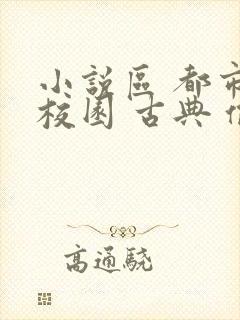 小說區 都市
校園 古典
高通驍